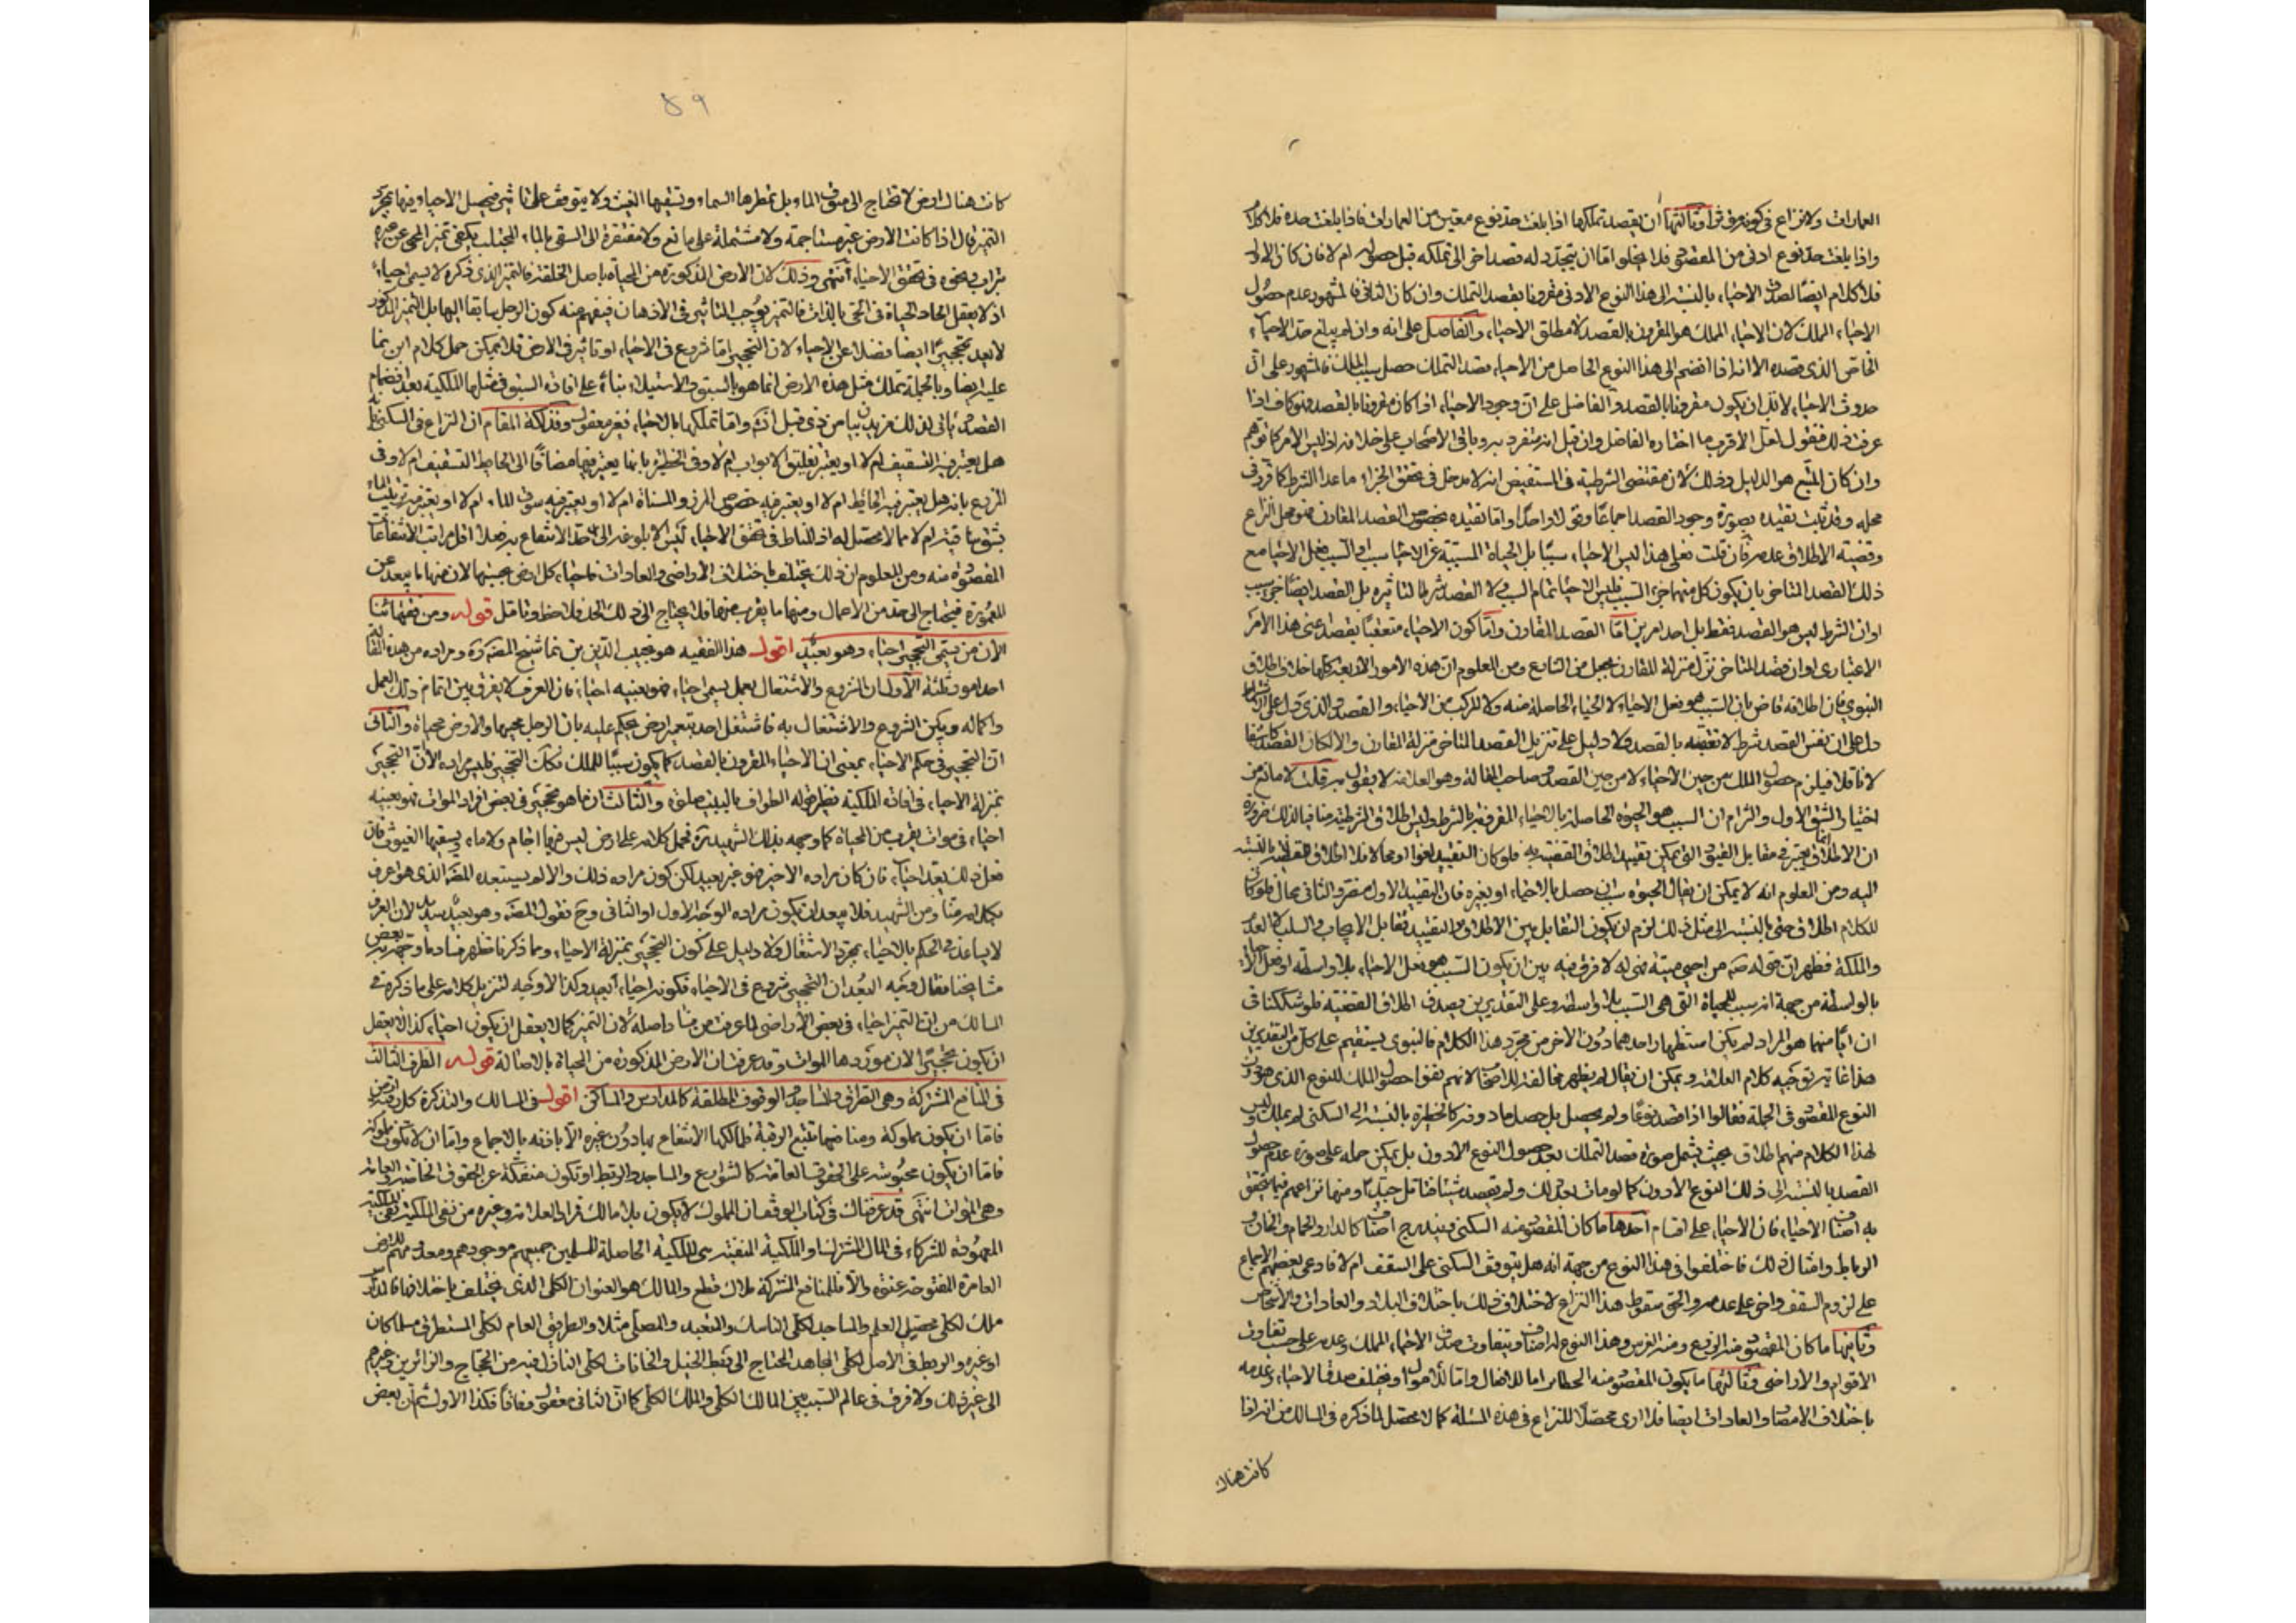 العمارات ولا نزاع في كونه مؤثرا وثالثها ان يقصد تملكها اذا بلغت حد نوع معين من العمارات فاذا بلغت حده فلا كلام
واذا بلغت حد نوع ادنى من المقصود فلا يخلو اما ان يتجدد له قصد اخر الى تملكه قبل حصوله ام لا فان كان الاول
فلا كلام ايضا لصدق الاحياء بالنسبة الى هذا النوع الادنى مقرونا بقصد التملك وان كان الثاني فالمشهور عدم حصول
الاحياء المملك لان الاحياء المملك هو المقرون بالقصد لا مطلق الاحياء والفاضل على انه وان لم يبلغ حد الاحياء
الخاص الذي قصده الا انه اذا انضم الى هذا النوع الحاصل من الاحياء قصد التملك حصل سبب الملك فالمشهور على ان
حدوث الاحياء لابد ان يكون مقرونا بالقصد والفاضل على ان وجود الاحياء اذا كان مقرونا بالقصد فهو كاف اذا
عرفت ذلك فنقول لعل الاقرب ما اختاره الفاضل وان قيل انه متفرد به وباقي الاصحاب على خلافه اذ ليس الامر كما توهم
وان كان المتبع هو الدليل وذلك لان مقتضى الشرطية في المستفيض انه لا مدخل في تحقق الجزاء ما عدا الشرط كما قرر في
محله وقد ثبت تقيده بصورة وجود القصد اجماعا وقولا واحدا واما تقيده بخصوص القصد المقارن فهو محل النزاع
وقضية الاطلاق عدمه فان قلت فعلى هذا ليس الاحياء سببا بل الحياة المسببة عن الاحيا سبب او السبب فعل الاحيا مع
ذلك القصد المتاخر بان يكون كل منهما جزء السبب فليس الاحيا تمام السبب ولا القصد شرطا لتاثيره بل القصد ايضا جزء سبب
او ان الشرط ليس هو القصد فقط بل احد امرين اما القصد المقارن واما كون الاحياء متعقبا بقصد اعني هذا الامر
الاعتباري او ان قصد المتاخر نزل منزلة المقارن بجعل من الشارع ومن المعلوم ان هذه الامور الاربعة كلها خلاف اطلاق
النبوي فان اطلاقه قاض بان السبب هو فعل الاحياء لا الحياء الحاصلة منه ولا المركب من الاحياء والقصد والذي دل على اشتراط
دل على ان نفس القصد شرط لا تعقبه بالقصد ولا دليل على تنزيل القصد المتاخر منزلة المقارن والا لكان القصد كاشفا
لا ناقلا فيلزم حصول الملك من حين الاحياء لا من حين القصد وصاحب المقالة وهو العلامة لا يقول به قلت لا مانع من
اختيار الشق الاول والتزام ان السبب هو الحيوة الحاصلة بالاحياء المقرونة بالشرط وليس اطلاق الشرطية منافيا لذلك ضرورة
ان الاطلاق انما يعتبر في مقابل القيود التي يمكن تقييد اطلاق القضية به فلو كان التقييد لغوا او محالا فلا اطلاق للقضية بالنسبة
اليه ومن المعلوم انه لا يمكن ان يقال الحيوة سواء حصل بالاحياء او بغيره فان التقييد الاول مضر والثاني محال فلو كان
للكلام اطلاق حتى بالنسبة الى مثل ذلك لزم ان يكون التقابل بين الاطلاق والتقييد تقابل الايجاب والسلب لا العدم
والملكة فظهر ان قوله ص من احيى ميتة فهي له لا فرق فيه بين ان يكون السبب هو فعل الاحياء بلا واسطة او فعل الاحياء
بالواسطة من جهة انه سبب للحياة التي هي السبب بلا واسطة وعلى التقديرين يصدق اطلاق القضية فلو شككنا في
ان ايا منهما هو المراد لم يكن استظهار احدهما دون الاخر من مجرد هذا الكلام فالنبوي يستقيم على كل من التقديرين
هذا غاية توجيه كلام العلامة ويمكن ان يقال لم يظهر مخالفته للاصحاب لانهم نفوا حصول الملك للنوع الذي هو دون
النوع المقصود في الجملة فقالوا اذا قصد نوعا ولم يحصل بل حصل ما دونه كالحظيرة بالنسبة الى السكنى لم يملك وليس
لهذا الكلام منهم اطلاق بحيث يشمل صورة قصد التملك بعد حصول النوع الادون بل يمكن حمله على صورة عدم حصول
القصد بالنسبة الى ذلك النوع الادون كما لو مات بعد ذلك ولم يقصد شيئا فتامل جيدا ومنها نزاعهم فيما يتحقق
به اصناف الاحياء فان الاحياء على اقسام احدها ما كان المقصود منه السكنى ويندرج اصنافا كالدار والحمام والخان و
الرباط وامثال ذلك فاختلفوا في هذا النوع من جهة انه هل يتوقف السكنى على السقف ام لا فادعى بعضهم الاجماع
على لزوم السقف واخر على عدمه والحق سقوط هذا النزاع لاختلاف ذلك باختلاف البلاد والعادات والاشخاص
وثانيها ما كان المقصود منه الزرع ومنه الغرس وهذا النوع له اصناف ويتفاوت صدق الاحياء المملك وعدمه على حسب تفاوت
الاقوام والاراضي وثالثها ما يكون المقصود منه الحظائر اما للاغنام واما للاموال ويختلف صدق الاحياء وعدمه
باختلاف الامصار والعادات ايضا فلا ارى محصلا للنزاع في هذه المسئلة كما لا محصل لما ذكره في المسالك من انه اذا
كانت هناك
٨٩
كانت هناك ارض لا تحتاج الى سوق الماء بل تمطرها السماء وتسقيها الغيث ولا يتوقف على شئ فيحصل الاحياء فيها بمجرد
التميز قال اذا كانت الارض غير مستاجمة ولا مشتملة على مانع ولا مفتقرة الى السقي بالماء المجتلب يكفي تميز المحيى عن غيره
بتراب ونحوه في تحقق الاحياء انتهى وذلك لان الارض المذكورة من الحياة باصل الخلقة فالتميز الذي ذكره لا يسمى احياء
اذ لا يعقل ايجاد الحياة في الحي بالذات فالتميز يوجب التاثير في الاذهان فيفهم منه كون الرجل سابقا اليها بل التميز المذكور
لا يعد تحجيرا ايضا فضلا عن الاحياء لان التحجير اما شروع في الاحياء او تاثير في الارض فلا يمكن حمل كلام ابن نما
عليه ايضا وبالجملة تملك مثل هذه الارض انما هو بالسبق والاستيلاء بناء على افادة السبق في مثلها الملكية بعد انضمام
القصد ياتي لذلك مزيد بيان من ذي قبل انش واما تملكها بالاحياء فغير معقول وفذلكة المقام ان النزاع في السكنى بانه
هل يعتبر فيه التسقيف ام لا او يعتبر تعليق الابواب ام لا وفي الحظيرة بانما يعتبر فيها مضافا الى الحايط التسقيف ام لا وفي
الزرع بانه هل يعتبر فيه الحائط ام لا او يعتبر فيه خصوص المرز والمسناة ام لا او يعتبر فيه سوق الماء ام لا او يعتبر فيه ترتيب الماء
بشق ساقية ام لا مما لا محصل له اذ المناط في تحقق الاحياء ليس الا بلوغه الى حد الانتفاع به فعلا اقل مراتب الانتفاعات
المقصودة منه ومن المعلوم ان ذلك يختلف باختلاف الاراضي والعادات فاحياء كل ارض بحسبها لان منها ما يبعد عن
المعمورة فيحتاج الى حد من الاعمال ومنها ما يقرب منها فلا يحتاج الى ذلك الحد فلاحظ وتامل قوله ومن فقهائنا
الان من يسمى التحجير احياء وهو بعيد اقول هذا الفقيه هو نجيب الدين بن نما شيخ المصنف ره ومراده من هذه المقالة
احد امور ثلثة الاول ان الشروع والاشتغال بعمل يسمى احياء فهو بعينه احياء فان العرف لا يفرق بين اتمام ذلك العمل
واكماله وبين الشروع والاشتغال به فاشتغل احد بتعمير ارض يحكم عليه بان الرجل محييها والارض محياة والثاني
ان التحجير في حكم الاحياء بمعنى ان الاحياء المقرون بالقصد كما يكون سببا للملك فكك التحجير فليس مراده الا ان التحجير
بمنزلة الاحياء في افادة الملكية نظير قوله الطواف بالبيت صلوة والثالث ان ما هو تحجير في بعض افراد الموات فهو بعينه
احياء في موات يقرب من الحياة كما وجهه بذلك الشهيد ره فحمل كلامه على ارض ليس فيها اجام ولا ماء ويسقيها الغيوث فان
فعل ذلك يعد احياء فان كان مراده الاخير فهو غير بعيد لكن كون مراده ذلك والا لم يستبعده المصنف الذي هو اعرف
بكلامه منا ومن الشهيد فلا يبعد ان يكون مراده الوجه الاول او الثاني وح فقول المصنف وهو بعيد سديد لان العرف
لا يساعد في الحكم بالاحياء بمجرد الاشتغال ولا دليل على كون التحجير بمنزلة الاحياء ومما ذكرنا تظهر فساد ما وجهه به بعض
مشايخنا فقال وجه البعد ان التحجير شروع في الاحياء فكونه احياء ابعد وكذا لا وجه لتنزيل كلامه على ما ذكره في
المسالك من ان التميز احياء في بعض الاراضي لما عرفت من فساد اصله لان التميز كما لا يعقل ان يكون احياء كذا لا يعقل
ان يكون تحجيرا لان موردها الموات وقد عرفت ان الارض المذكورة من الحياة بالاصالة قوله الطرف الثالث
في المنافع المشتركة وهي الطرق والمساجد والوقوف المطلقة كالمدارس والمساكن اقول في المسالك والتذكرة كل رقبة ارض
فاما ان يكون مملوكة ومنافعها تتبع الرقبة فلمالكها الانتفاع بها دون غيره الا باذنه بالاجماع واما ان لا تكون مملوكة
فاما ان يكون محبوسة على الحقوق العامة كالشوارع والمساجد والربط او تكون منفكة عن الحقوق الخاصة والعامة
وهي الموات انتهى قد عرفت في كتاب الوقف ان المملوك لا يكون بلا مالك فمراد العلامة وغيره من نفي الملكية نفي الملكية
المعهودة للشركاء في المال المشترك او الملكية المنفية سوى الملكية الحاصلة للمسلمين جميعهم موجودهم ومعدومهم للارض
العامرة المفتوحة عنوة والا فللمنافع المشتركة ملاك قطعا والمالك هو العنوان الكلي الذي يختلف باختلافها فالمدارس
ملك لكلي محصل العلم والمساجد لكلي الناسك والمتعبد والمصلي مثلا والطريق العام لكلي المستطرق مسلما كان
او غيره والربط في الاصل لكلي المجاهد المحتاج الى ربط الخيل والخانات لكلي النازل فيه من الحجاج والزائرين وغيرهم
الى غير ذلك ولا فرق في عالم السببية بين المالك الكلي والملك الكلي كما ان الثاني معقول وفاقا فكذا الاول ثم ان بعض